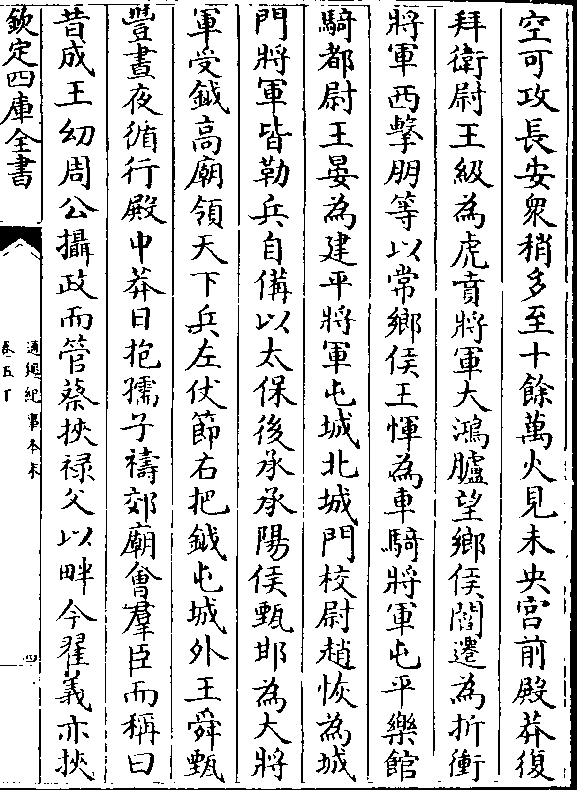 空可攻長安衆稍多至十餘萬火見未央宫前殿莽復
拜衛尉王級為虎賁將軍大鴻臚望鄉侯閻遷為折衝
將軍西擊朋等以常鄉侯王惲為車騎將軍屯平樂館
騎都尉王晏為建平將軍屯城北城門校尉趙恢為城
門將軍皆勒兵自備以太保後承承陽侯甄邯為大將
軍受鉞高廟領天下兵左仗節右把鉞屯城外王舜甄
豐晝夜循行殿中莽日抱孺子禱郊廟會羣臣而稱曰
昔成王幼周公攝政而管蔡挾禄父以畔今翟義亦挾
欽定四庫全書
通鑑紀事本末
卷五下
四